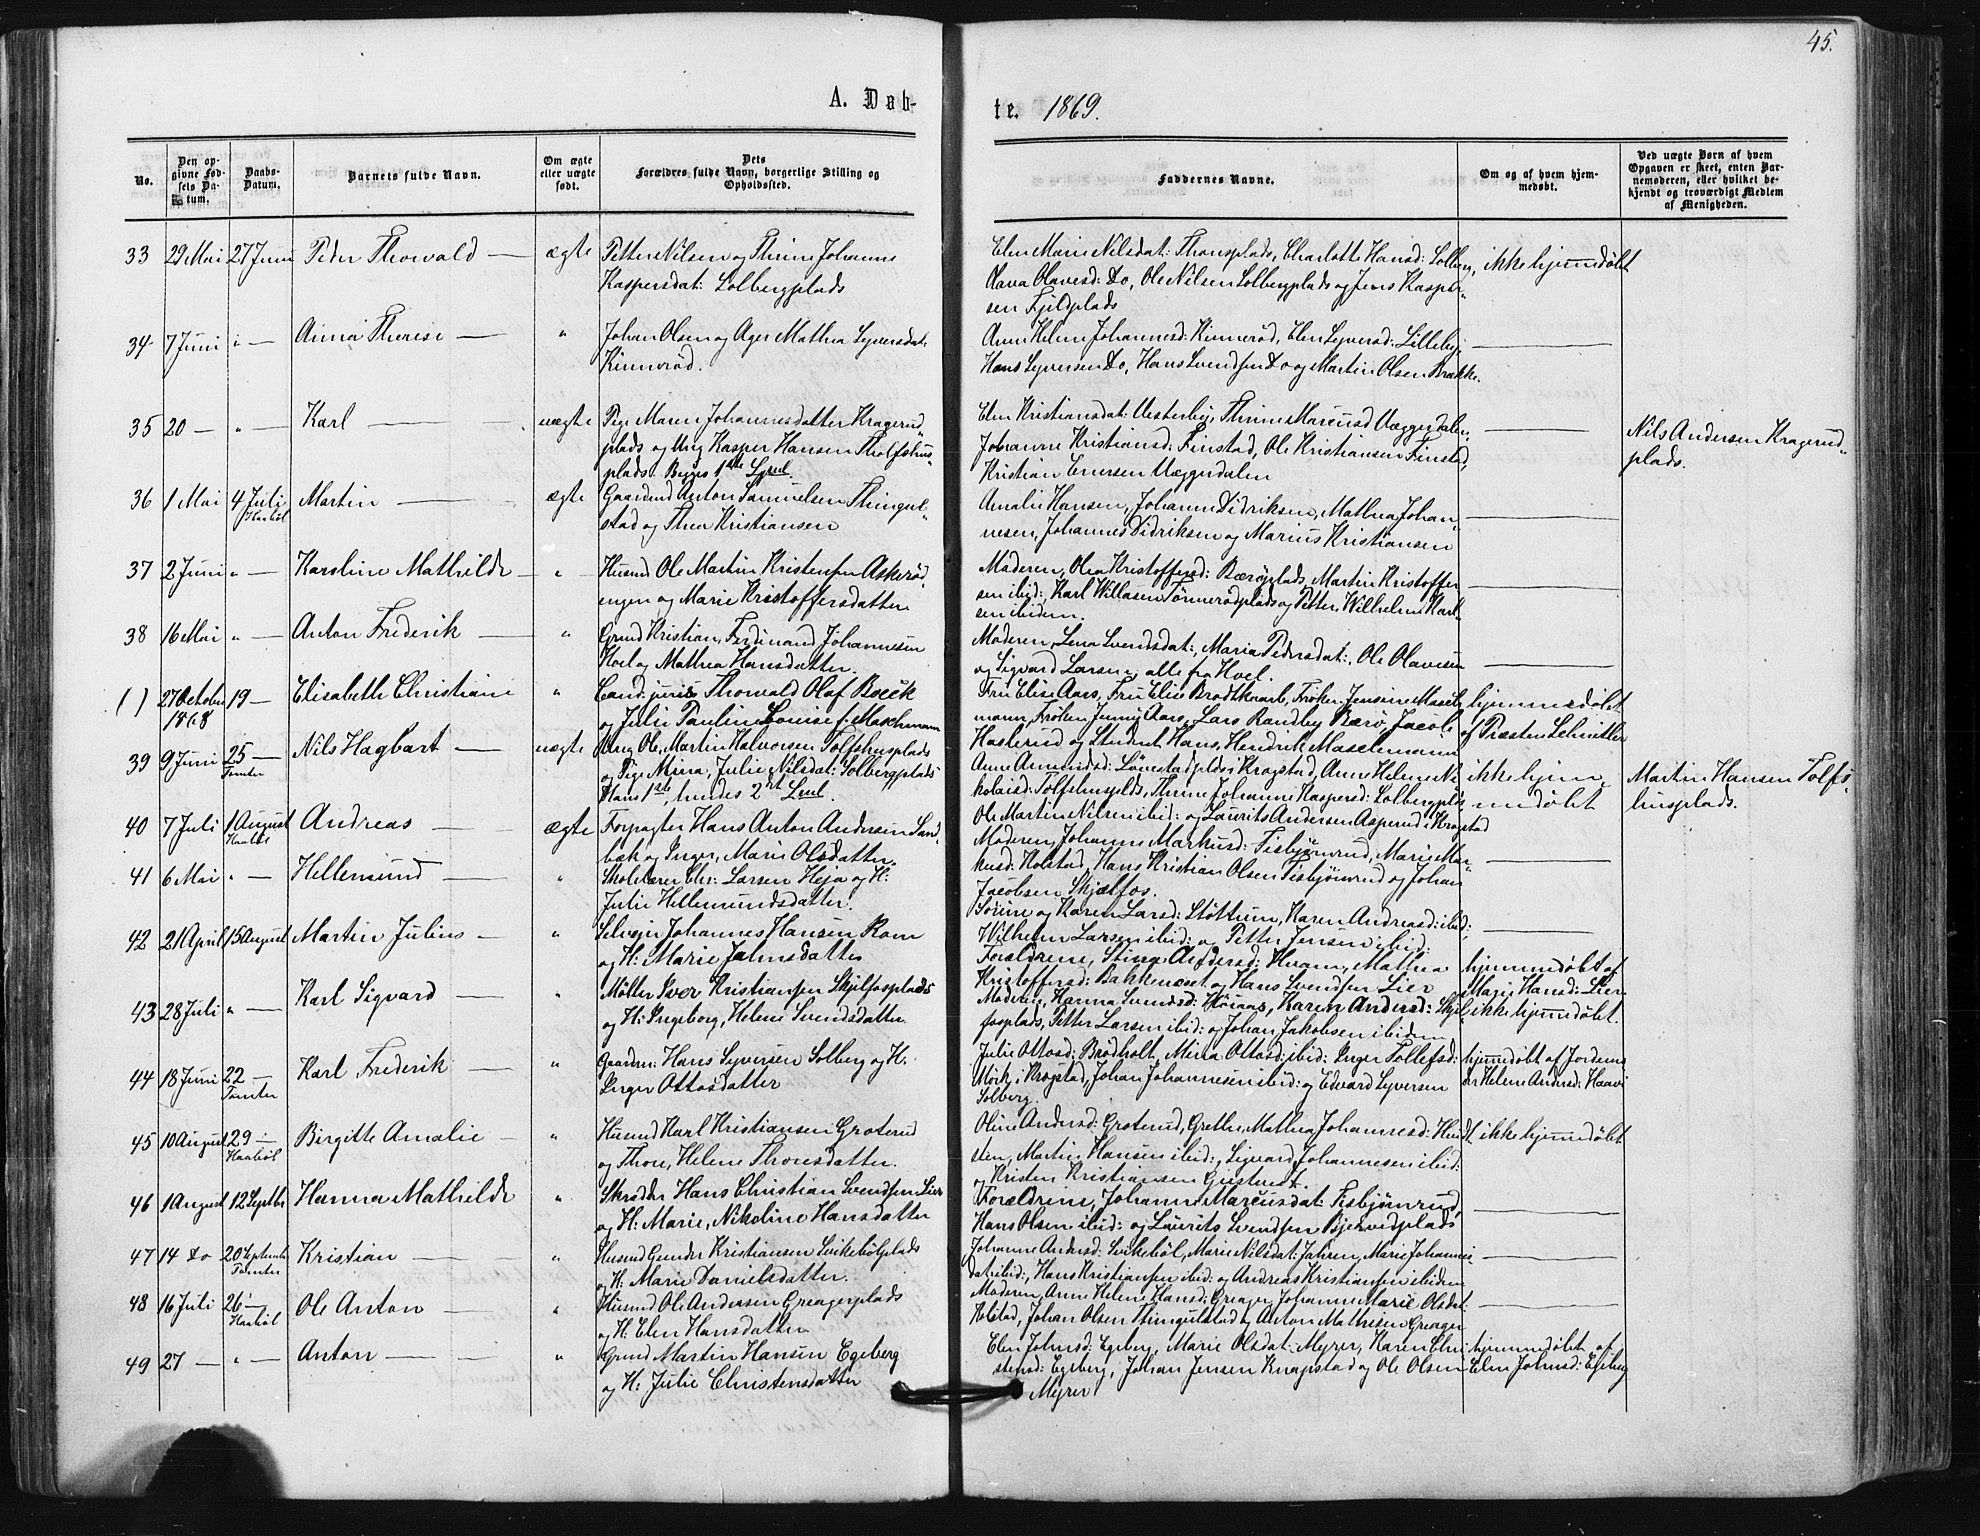 45.
A. Døb-
te. 1869.
No.
Den op-
givne Fød-
sels Da-
tum.
Daabs-
Datum.
Barnets fulde Navn.
Om ægte
eller uægte
født.
Dets
Forældres fulde Navn, borgerlige Stilling og
Opholdssted.
Faddernes Navne.
Om og af hvem hjem-
medøbt.
Ved uægte Børn af hvem
Opgaven er skeet, enten Bar-
nemoderen, eller hvilket be-
kjendt og troværdigt Medlem
af Menigheden.
33 29 Mai 27 Juni Peder Thorvald — ægte
Petter Nilsen og Thrine Johanne
Kaspersdat: Solbergplads
Elen Marie Nilsdat: Thonsplads, Charlotte Hansd: Solberg,
Olava Olavesd: Do, Ole Nilsen Solbergplads og Jens Kasper-
sen Fjeldplads
ikke hjemmedøbt
34 7 Juni " — Anna Therese — "
Johan Olsen og Ager Mathea Syversdat:
Kinnerød.
Anne Helene Johannesd: Kinnerød, Elen Syversd: Lilleby,
Hans Syversen Do, Hans Svendsen Do og Martin Olsen Brække.
35 20 — " — Karl — uægte
Pige Maren Johannesdatter Kragerud-
plads og Ung Kasper Hansen Tholfshus-
plads. Begges 1ste Leiel.
Elen Kristiansdat: Vesterby, Thrine Marcusd Væggedalen,
Johanne Kristiansd: Finstad, Ole Kristiansen Finstad,
Kristian Enersen Væggedalen
Nils Andersen Kragerud-
plads.
36 1 Mai 4 Juli Martin — ægte
Haabøl
Gaardmd Anton Samuelsen Thingul-
stad og Thea Kristiansen
Amalie Hansen, Johanne Didriksen, Mathea Johan-
nesen, Johannes Didriksen og Marius Kristiansen
37 2 Juni " — Karoline Mathilde — "
Husmd Ole Martin Kristensen Askerød-
engen og Marie Kristoffersdatter
Moderen, Olea Kristoffersd: Bærøplads, Martin Kristoffer-
sen ibid: Karl Willasen Tønnerødplads og Petter Wilhelm Karl-
sen ibidem.
38 16 Mai " — Anton Frederik — "
Grmd Kristian Ferdinand Johannesen
Hoel og Mathea Hansdatter.
Moderen, Lena Svendsdat:, Maria Pedersdat:, Ole Olavesen
og Sigvard Larsen, alle fra Hoel.
( ) 27 October 19 — Elisabeth Christiane "
1868
Cand. juris Thorvald Olaf Boeck
og Julie Pauline Louise f. Maschmann
Fru Elise Aars, Fru Elise Brodtkorb, Frøken Jensine Masch-
mann, Frøken Jenny Aars, Lars Randby Bærø, Jacob
Haslerud og Student Hans Hendrik Maschmann
hjemmedøbt
af Præsten Schnitler
39 9 Juni 25 — Nils Hagbart — uægte
Tomter
Ung Ole Martin Halvorsen Tolfshusplads
og Pige Mina Julie Nilsdat: Solbergplads
Hans 1ste, hendes 2det Leiel.
Anne Amundsd: Lønestadplds i Kragstad, Anne Helene Ni-
kolaisd: Tolfshusplds, Thrine Johanne Kaspersd: Solbergplds,
Ole Martin Nilsen ibid: og Laurits Andersen Asperud i Kragstad
ikke hjem-
medøbt
Martin Hansen Tolfs-
husplads.
40 7 Juli 1 August Andreas — ægte
Haabøl
Forpagter Hans Anton Andersen Sand-
bæk og Inger Marie Olsdatter.
Moderen, Johanne Markusd: Fisbjønrud, Marie Mar-
kusd: Holstad, Hans Kristian Olsen Fisbjønrud og Johan
Jacobsen Skjælfos.
41 6 Mai " — Hellemund — "
Skolelærer Chr: Larsen Heja og H:
Julie Hellemundsdatter.
Sørine og Karen Larsd: Støttum, Karen Andreasd: ibid:,
Wilhelm Larsen ibid: og Petter Jensen ibid:
42 21 April 15 August Martin Julius — "
Selveier Johannes Hansen Rom
og H: Marie Jahnsdatter
Forældrene, Stine Andersd: Huam, Mathea
Kristoffersd: Bakkeneset og Hans Svendsen Lier
hjemmedøbt af
Marie Hansd: Lier
43 28 Juli " — Karl Sigvard — "
Møller Sver Kristiansen Skjelfosplads
og H: Ingeborg Helene Svendsdatter
Moderen, Hanna Svendsd: Høiaas, Karen Andersd: Skjel-
fosplads, Petter Larsen ibid: og Johan Jakobsen ibidem
ikke hjemmedøbt.
44 18 Juni 22 — Karl Frederik — "
Tomter
Gaardm: Hans Syversen Solberg og H:
Inger Ottosdatter
Julie Ottosd: Brødholt, Mina Ottosd: ibid: Inger Tollefsd:
Mørk i Kragstad, Johan Johannesen ibid: og Edvard Syversen
Solberg.
hjemmedøbt af Jordemo-
der Helene Andersd: Haavi
45 10 August 29 — Birgitte Amalie — "
Haabøl
Husmd Karl Kristiansen Groterud
og Thore Helene Thoresdatter.
Oline Andersd: Groterud, Grethe Mathea Johannesd: Huid-
sten, Martin Hansen ibid:, Sigvard Johannesen ibid:
og Kristen Kristiansen Gustvedt.
ikke hjemmedøbt
46 1 August 12 Septbr Hanna Mathilde "
Skrædder Hans Christian Svendsen Lier
og H: Marie Nikoline Hansdatter
Forældrene, Johanne Marcusdat: Fisbjønrud,
Hans Olsen ibid: og Laurits Svendsen Bjerkedplads
47 14 do 20 September Kristian — "
Tomter
Husmd Gunder Kristiansen Svikebølplads
og H: Marie Danielsdatter.
Johanne Andersd: Svikebøl, Marie Nilsdat: Jahren, Marie Johannes-
dat: ibid:, Hans Kristiansen ibid: og Andreas Kristiansen ibidem
48 16 Juli 26 — Ole Anton — "
Haabøl
Husmd Ole Andersen Greagerplads
og H: Elen Hansdatter
Moderen, Anne Helene Hansd: Greager, Johanne Marie Olsdat:
Holstad, Johan Olsen Thingulstad og Anton Mathisen Greager
49 27 — " — Anton — "
Grmd Martin Hansen Egeberg
og H: Julie Christensdatter
Elen Johnsd: Egeberg, Marie Olsdat: Myrer, Karen Chri-
stensd: Egeberg, Johan Jensen Knapstad og Ole Olsen
Myrer
hjemmedøbt af
Elen Johnsd: Egeberg